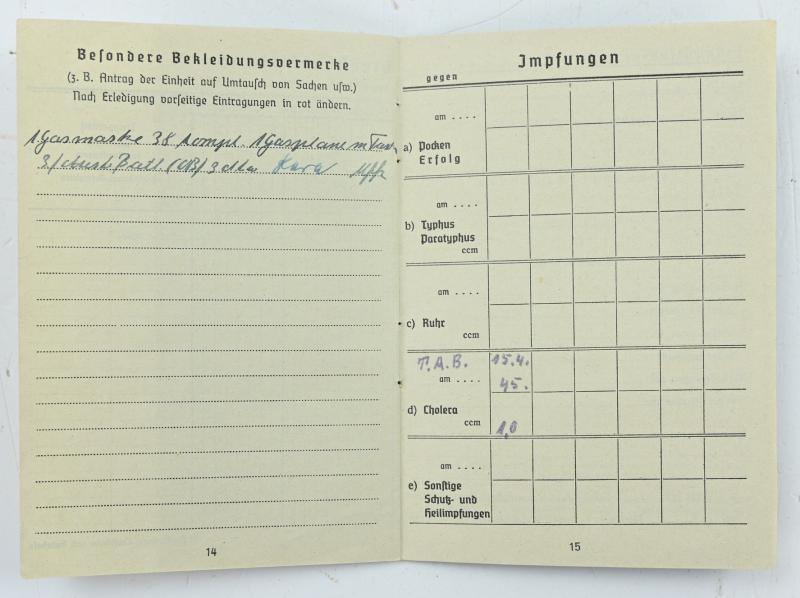 Besondere Bekleidungsvermerke
(z. B. Antrag der Einheit auf Umtausch von Sachen usw.)
Nach Erledigung vorseitige Eintragungen in rot ändern.
1 Gasmaske 38 kompl. 1 Gasplane m
Uffz
14
Impfungen
gegen
am . . . .
a) Pocken
Erfolg
am . . . .
b) Typhus
Paratyphus
ccm
am . . . .
c) Ruhr
ccm
T.A.B. 15.4.
am . . . . 45.
d) Cholera
ccm 1,0
am . . . .
e) Sonstige
Schutz- und
Heilimpfungen
15